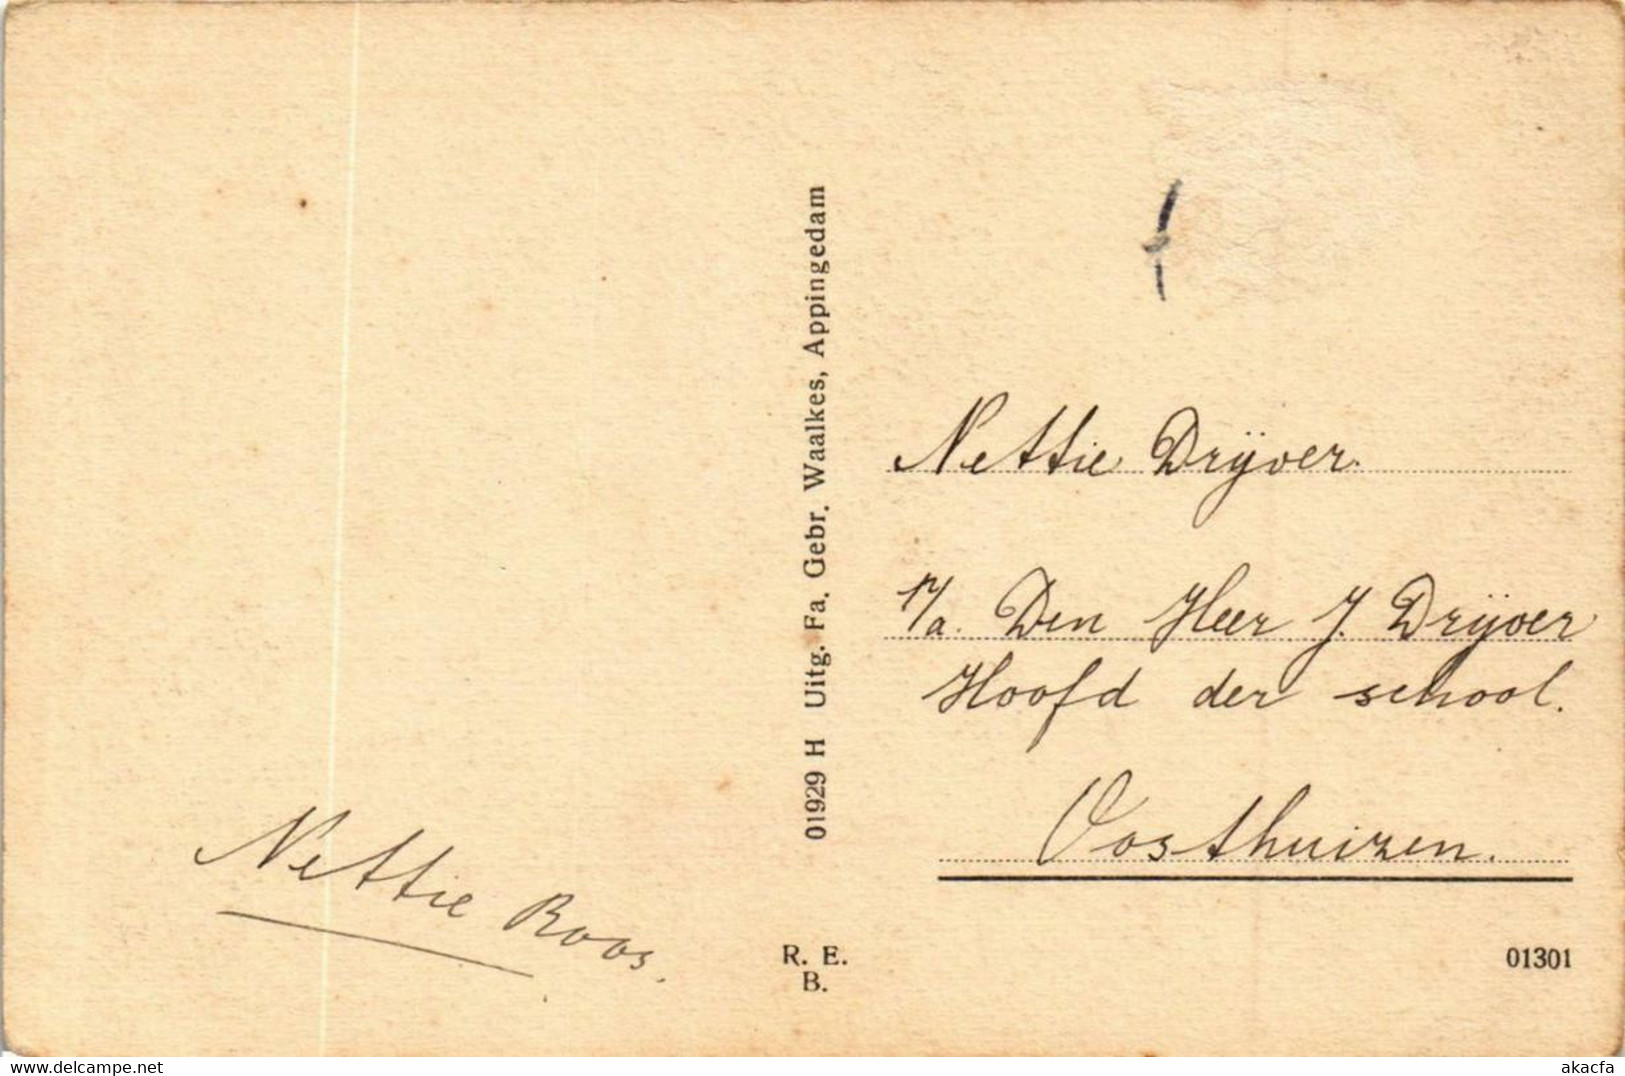 Nettie Roos.
01929 H Uitg. Fa. Gebr. Waalkes, Appingedam
R. E.
B.
Nettie Drÿver.
p/a. Den Heer J. Drÿver
Hoofd der school.
Oosthuizen.
01301
www.delcampe.net
akacfa